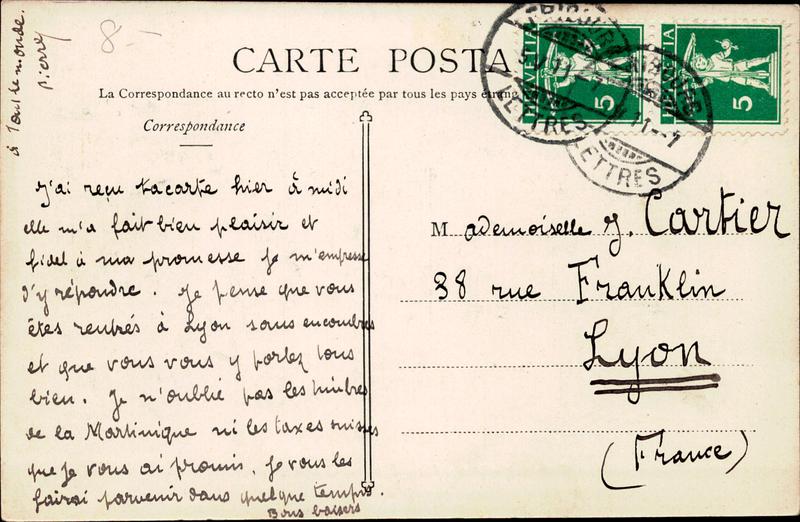 à tout le monde.
Pierre
8-
CARTE POSTA
La Correspondance au recto n'est pas acceptée par tous les pays étrang
Correspondance
J'ai reçu ta carte hier à midi
elle m'a fait bien plaisir et
fidel à ma promesse je m'empresse
d'y répondre. Je pense que vous
êtes rentrés à Lyon sans encombres
et que vous vous y portez tous
bien. Je n'oublie pas les timbres
de la Martinique ni les taxes suisses
que je vous ai promis. Je vous les
fairai parvenir dans quelque temps.
Bons baisers
HELVETIA
5
HELVETIA
5
LETTRES
11--7
LETTRES
Mademoiselle J. Cartier
38 rue Franklin
Lyon
(France)